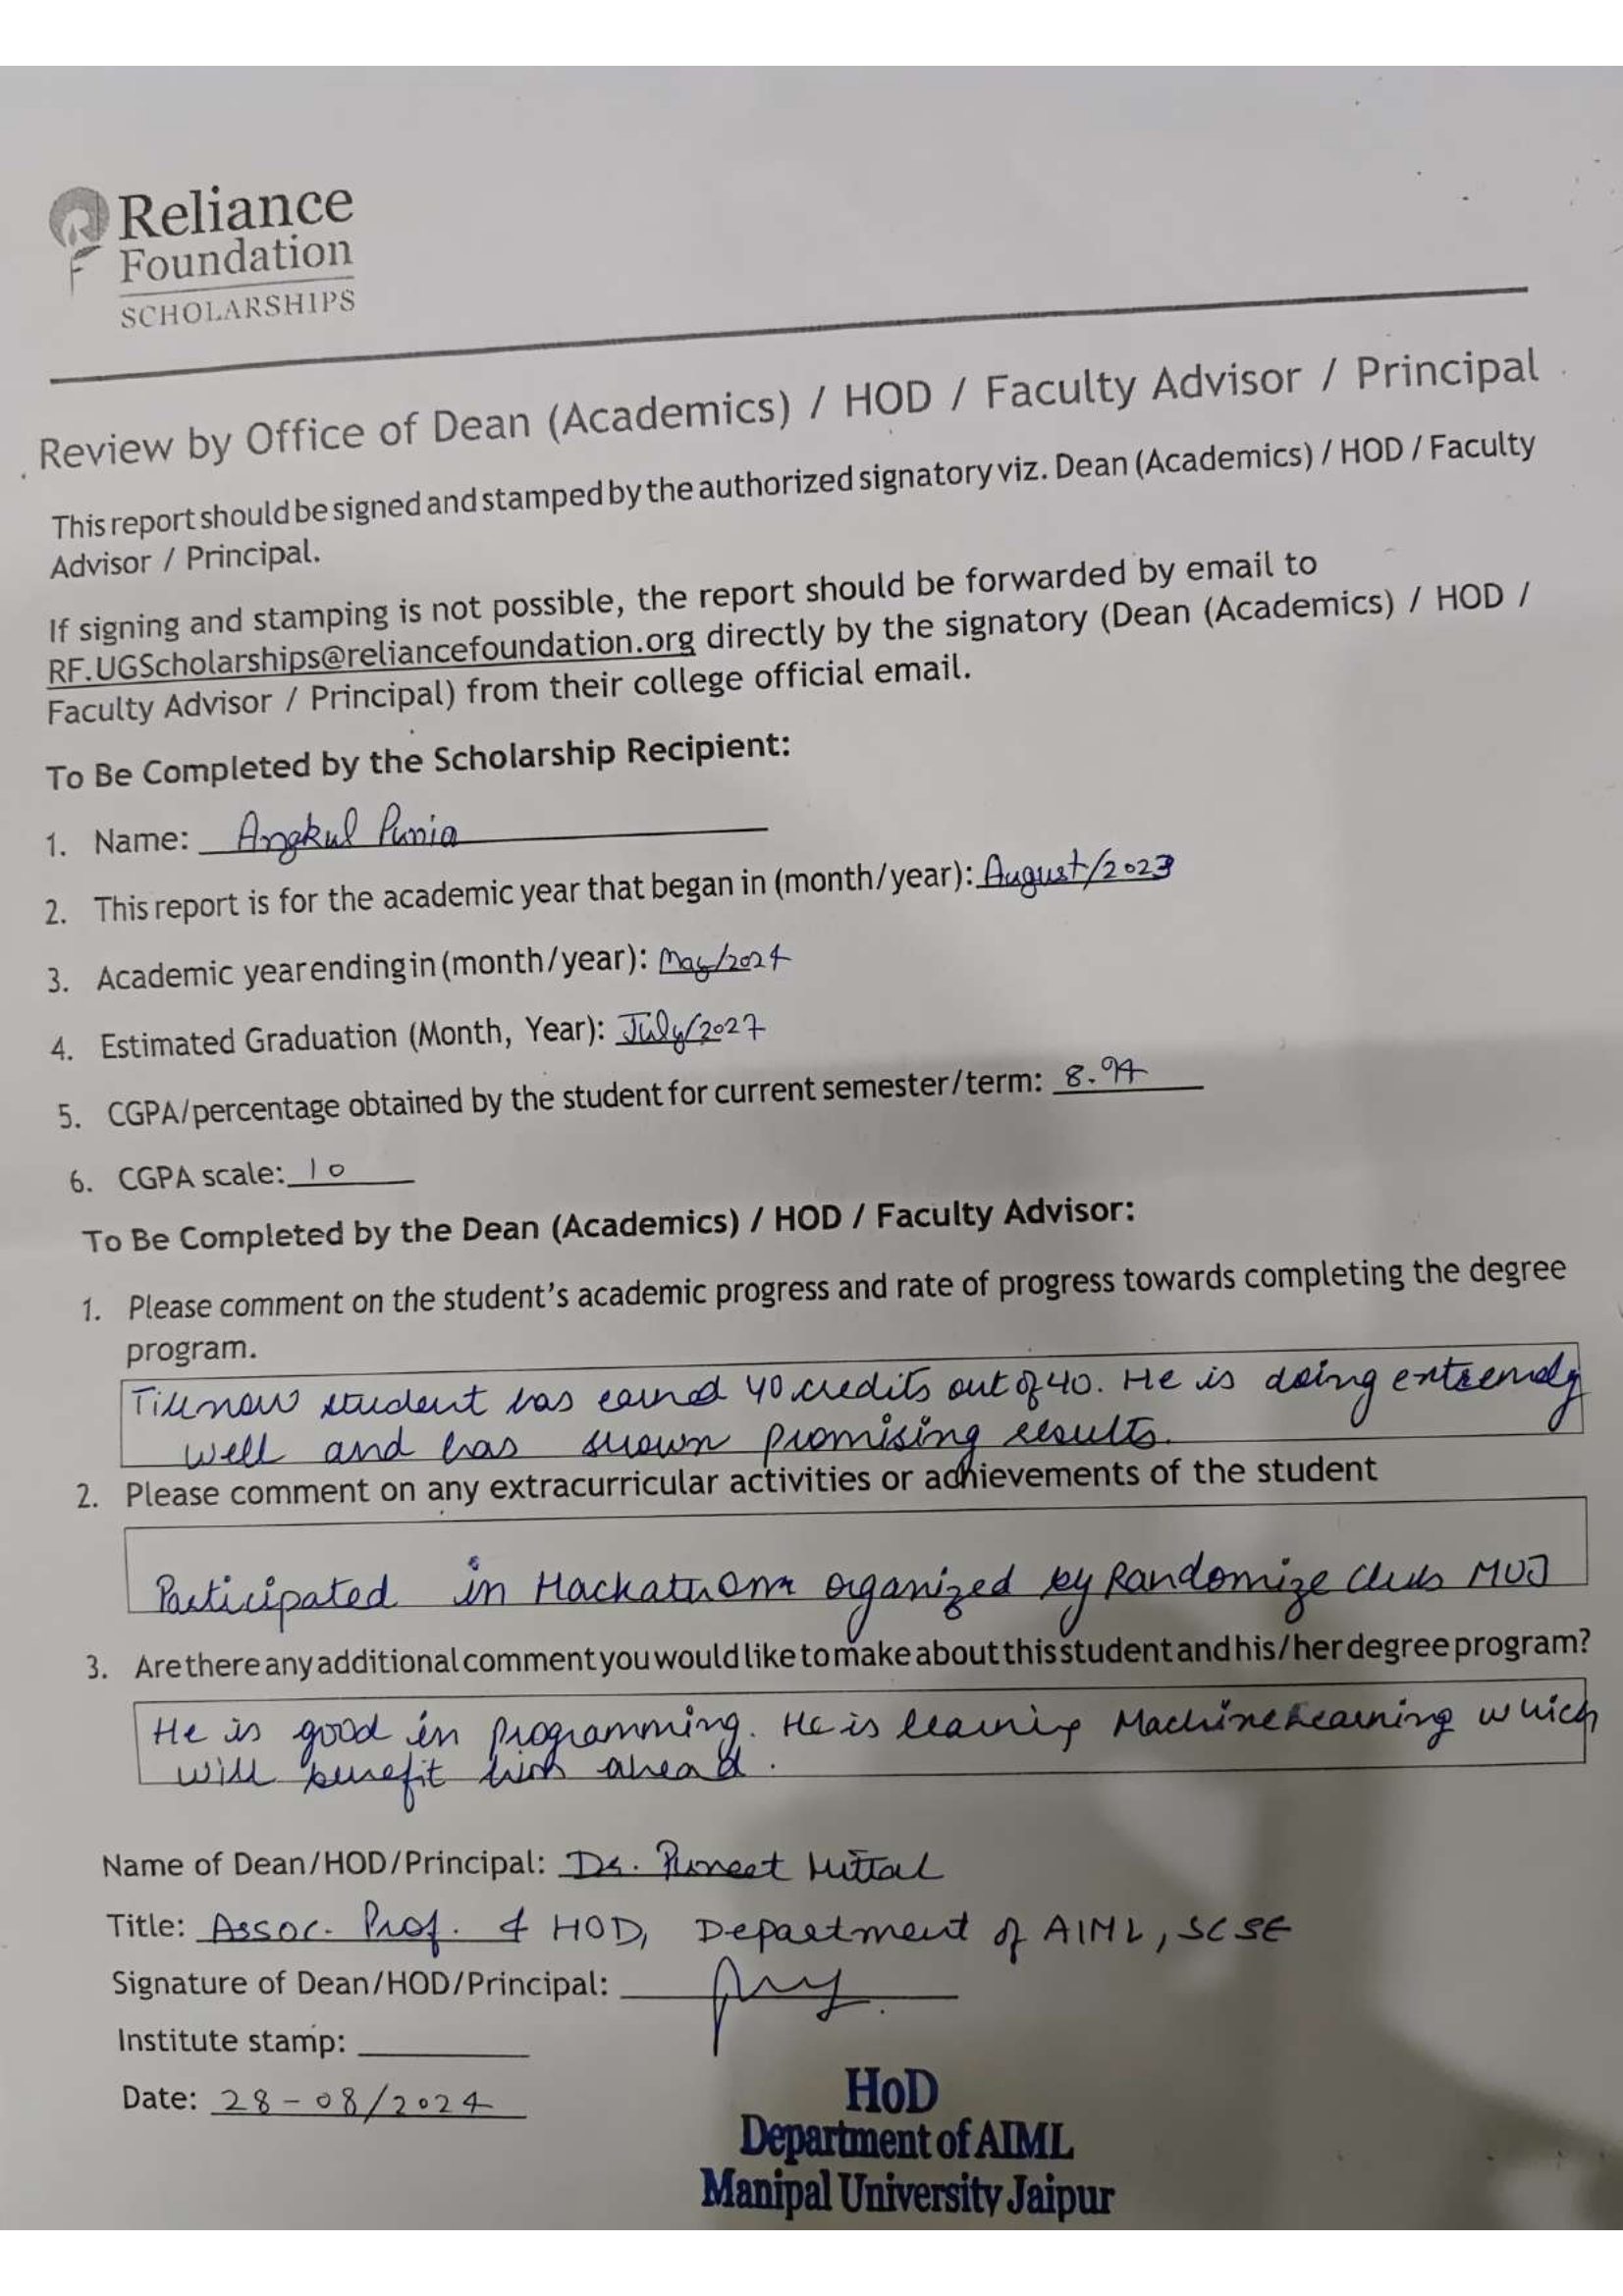 Reliance
Foundation
SCHOLARSHIPS
Review by Office of Dean (Academics) / HOD / Faculty Advisor / Principal
This report should be signed and stamped by the authorized signatory viz. Dean (Academics) / HOD / Faculty
Advisor / Principal.
If signing and stamping is not possible, the report should be forwarded by email to
RF.UGScholarships@reliancefoundation.org directly by the signatory (Dean (Academics) / HOD /
Faculty Advisor / Principal) from their college official email.
To Be Completed by the Scholarship Recipient:
1. Name: Angkul Punia
2. This report is for the academic year that began in (month/year): August/2023
3. Academic year ending in (month/year): May/2024
4. Estimated Graduation (Month, Year): July/2027
5. CGPA/percentage obtained by the student for current semester/term: 8.94
6. CGPA scale: 10
To Be Completed by the Dean (Academics) / HOD / Faculty Advisor:
1. Please comment on the student's academic progress and rate of progress towards completing the degree
program.
Till now student has earned 40 credits out of 40. He is doing extremely
well and has shown promising results.
2. Please comment on any extracurricular activities or achievements of the student
Participated in Hackathon organized by Randomize Club MUJ
3. Are there any additional comment you would like to make about this student and his/her degree program?
He is good in programming. He is learning Machine Learning which
will benefit him ahead.
Name of Dean/HOD/Principal: Dr. Puneet Mittal
Title: Assoc. Prof. & HOD, Department of AIML, SCSE
Signature of Dean/HOD/Principal:
Institute stamp:
Date: 28-08/2024
HoD
Department of AIML
Manipal University Jaipur